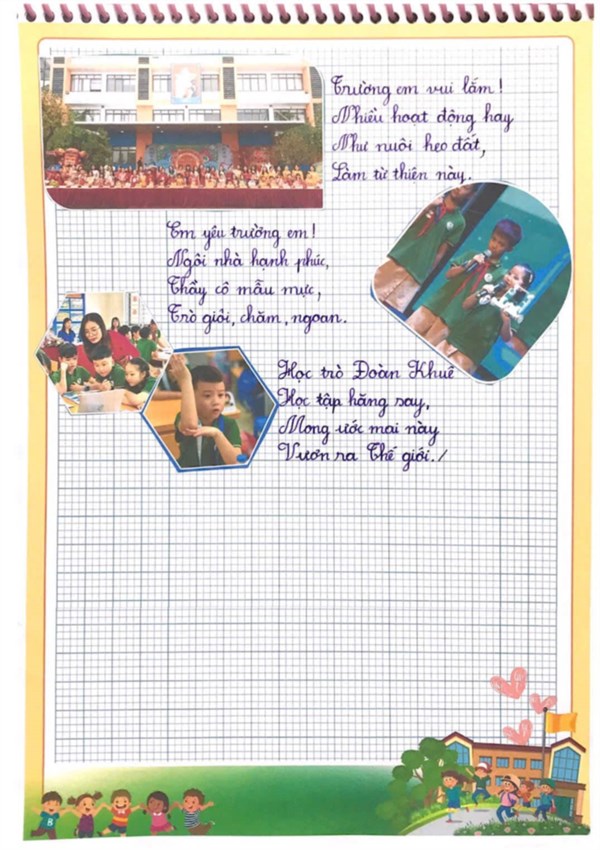 Trường em vui lắm!
Nhiều hoạt động hay
Như nuôi heo đất,
Làm từ thiện này.
Em yêu trường em!
Ngôi nhà hạnh phúc,
Thầy cô mẫu mực,
Trò giỏi, chăm, ngoan.
Học trò Đoàn Khuê
Học tập hăng say,
Mong ước mai này
Vươn ra Thế giới./